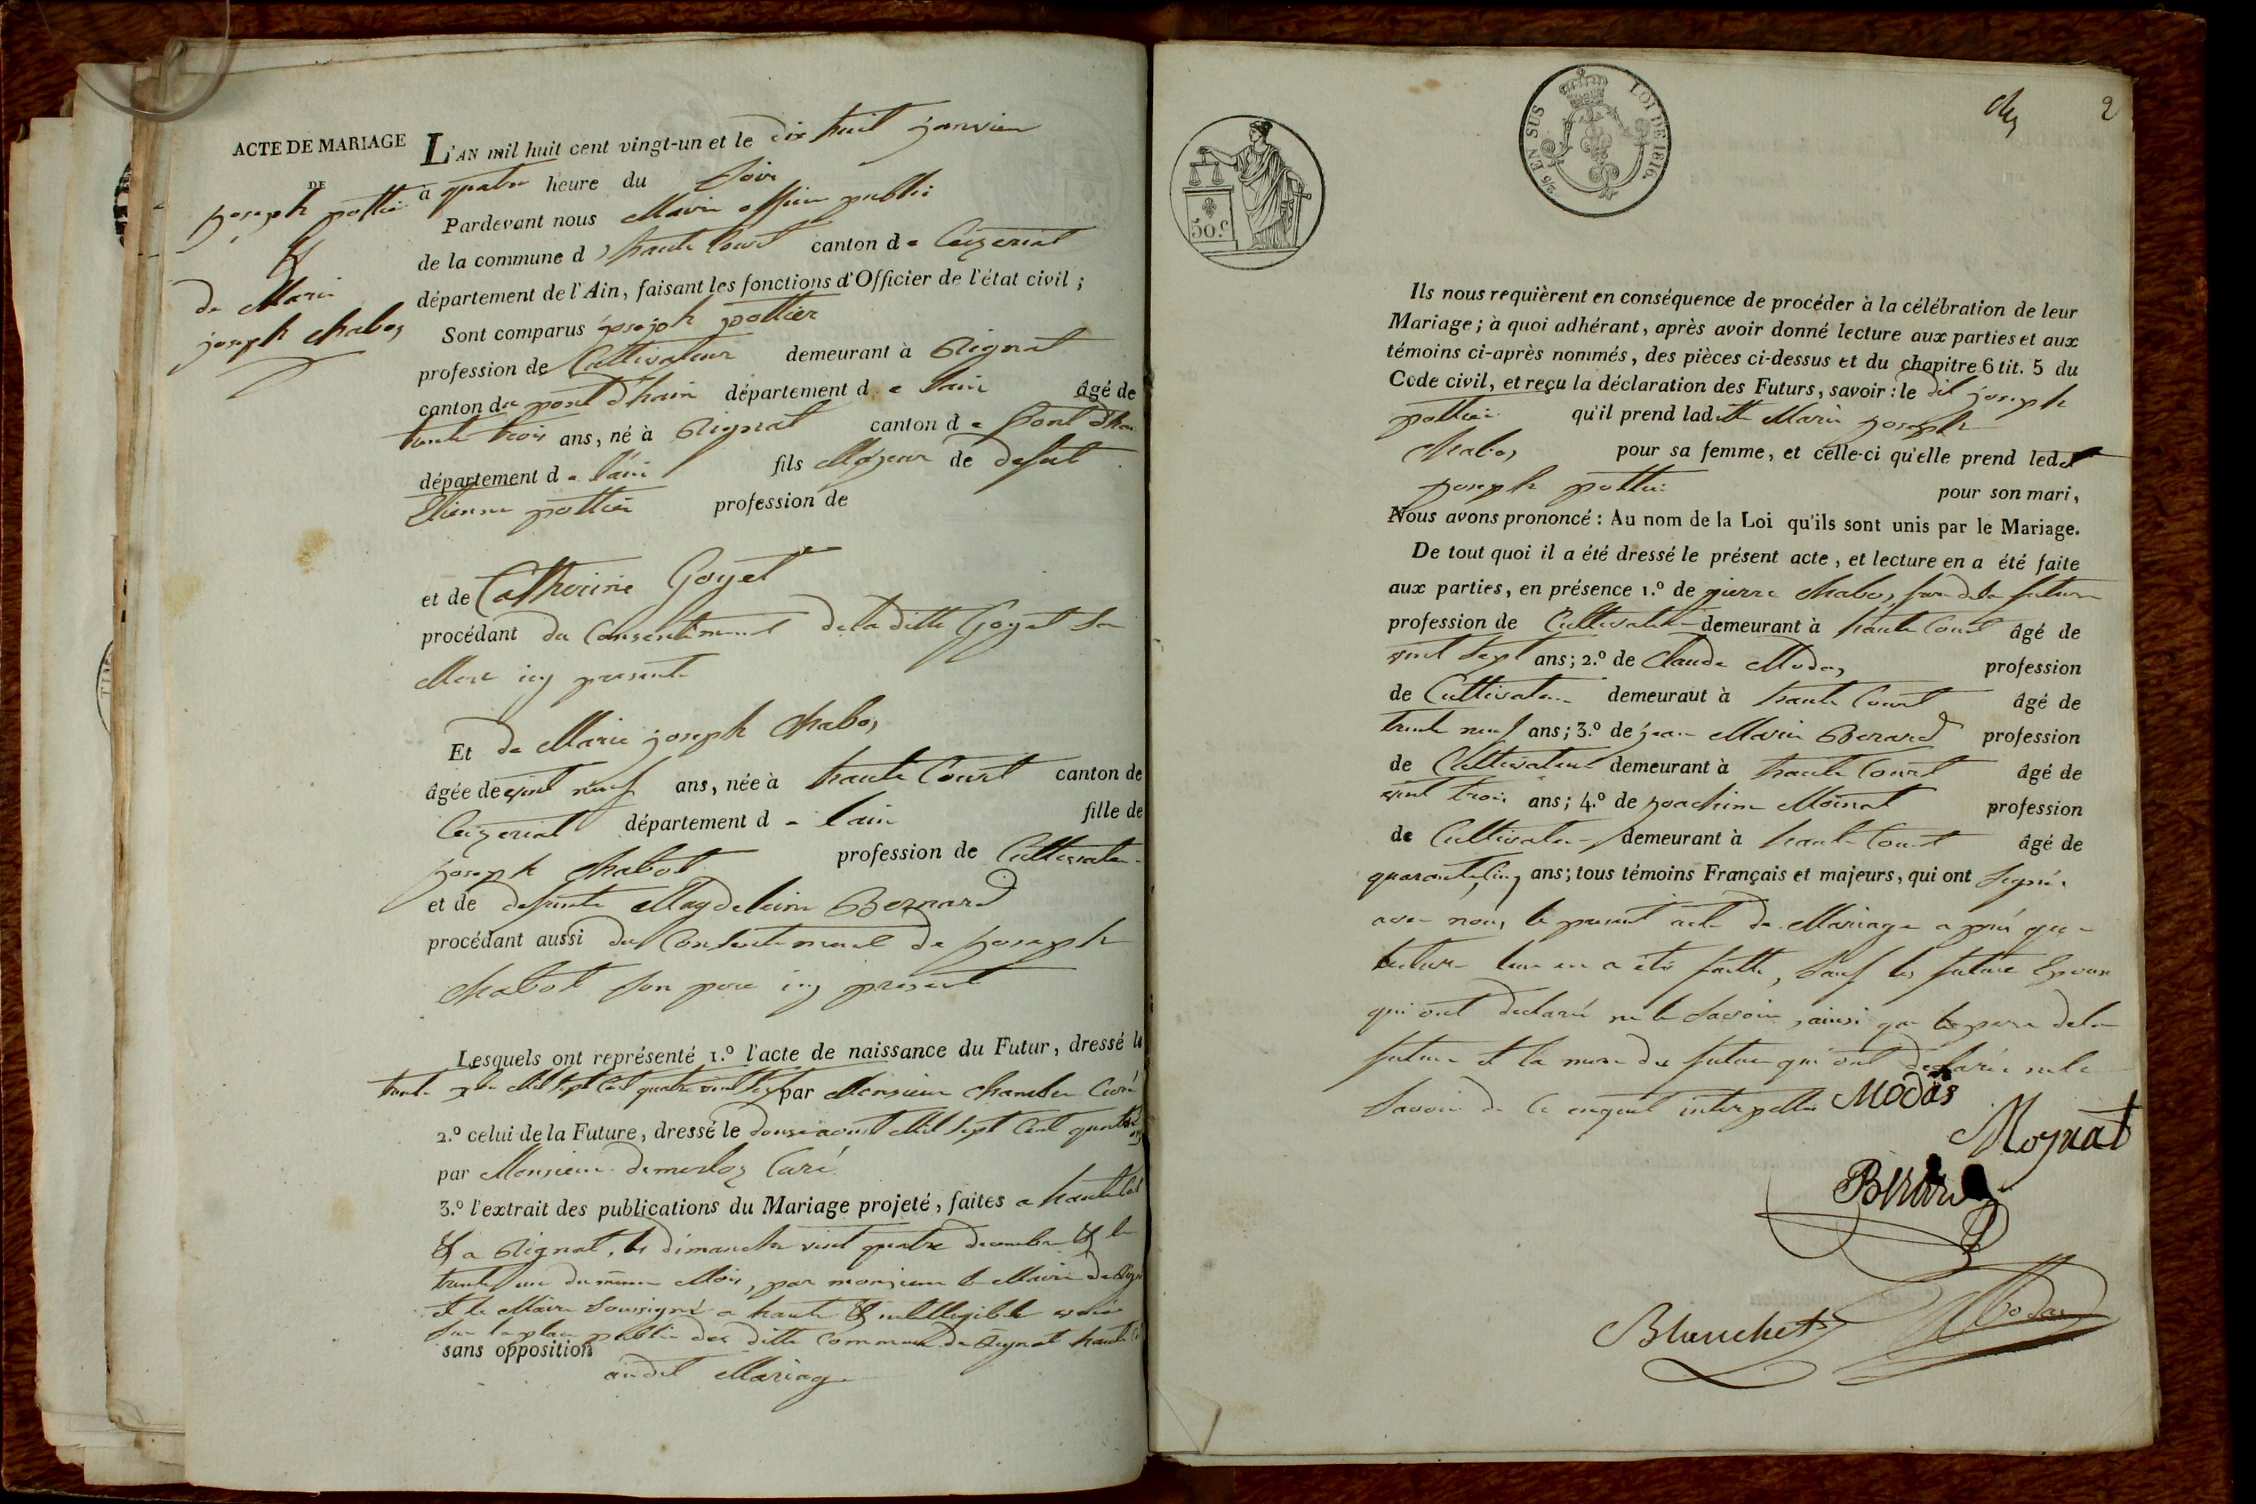 ACTE DE MARIAGE
DE
joseph pottier
&
de Marie
joseph Chabos
L'AN mil huit cent vingt-un et le dix huit janvier
à quatre heure du soir
Pardevant nous Maire officier public
de la commune d haute Court canton de Ceizeriat
département de l'Ain, faisant les fonctions d'Officier de l'état civil ;
Sont comparus joseph pottier
profession de Cultivateur demeurant à Rignat
canton du pont d'hain département de lain âgé de
trente trois ans, né à Rignat canton de pont d'hain
département de l'ain fils Majeur de defunt
Etienne pottier profession de
et de Catherine Goyet
procédant du Consentement de la ditte Goyet sa
Mere icy presente
Et de Marie joseph Chabos
âgée de vint neuf ans, née à haute Court canton de
Ceizeriat département de lain fille de
joseph Chabot profession de Cultivateur
et de defunte Magdeleine Bernard
procédant aussi du Consentement de joseph
Chabot son pere icy present
Lesquels ont représenté 1.º l'acte de naissance du Futur, dressé le
trente Mil sept Cent quatre vint sept par Monsieur Curé
2.º celui de la Future, dressé le douze aoust Mil sept Cent quatre
par Monsieur Curé
3.º l'extrait des publications du Mariage projeté, faites a haute
& a Rignat, les dimanche vint quatre decembre & le
trente un du même Mois, par monsieur le Maire de
et le Maire soussigné a haute & intelligible voix
sur la place public des ditte commune de Rignat haute
sans opposition
audit Mariage
50.C
2/5 EN SUS
LOI DE 1816.
2
Ils nous requièrent en conséquence de procéder à la célébration de leur
Mariage ; à quoi adhérant, après avoir donné lecture aux parties et aux
témoins ci-après nommés, des pièces ci-dessus et du chapitre 6 tit. 5 du
Code civil, et reçu la déclaration des Futurs, savoir : le dit joseph
pottier qu'il prend laditte Marie joseph
Chabos pour sa femme, et celle-ci qu'elle prend ledit
joseph pottier pour son mari,
Nous avons prononcé : Au nom de la Loi qu'ils sont unis par le Mariage.
De tout quoi il a été dressé le présent acte, et lecture en a été faite
aux parties, en présence 1.º de pierre Chabos frere de la future
profession de Cultivateur demeurant à haute Court âgé de
vint sept ans ; 2.º de Claude Modas profession
de Cultivateur demeuraut à haute Court âgé de
trente neuf ans ; 3.º de jean Marie Berard profession
de Cultivateur demeurant à haute Court âgé de
vint trois ans ; 4.º de joachim Moinat profession
de Cultivateur demeurant à haute Court âgé de
quarante cinq ans ; tous témoins Français et majeurs, qui ont signés
avec nous le present acte de Mariage après que
lecture leur en a été faitte, sauf les future Epoux
qui ont declaré ne le savoir, ainsi que le pere de la
future et la mere du future qui ont declarée ne le
savoir de ce enquit interpellé
Modas
Moynat
Berard
Blanchet
Modas